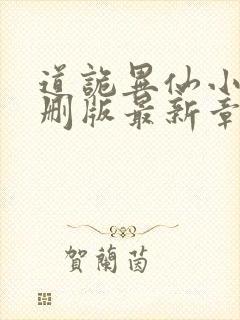 道詭異仙小
刪版最新章
賀蘭茵